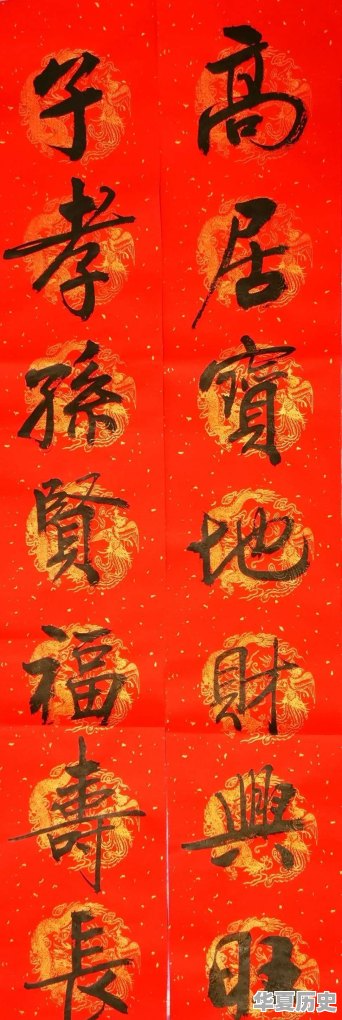 高居寶地財興旺
子孝孫賢福壽長
华夏历史